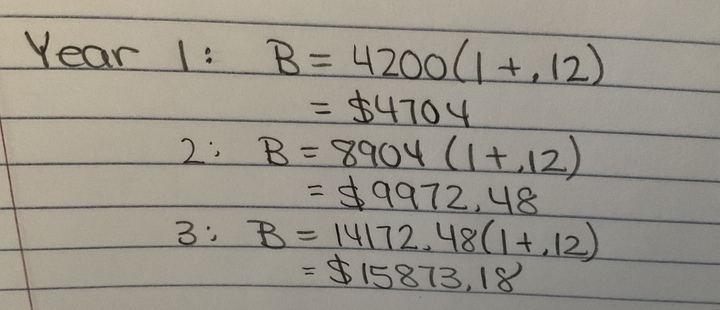 Year 1: B = 4200(1+.12)
= $4704
2: B = 8904 (1+.12)
= $9972.48
3: B = 14172.48(1+.12)
= $15873.18